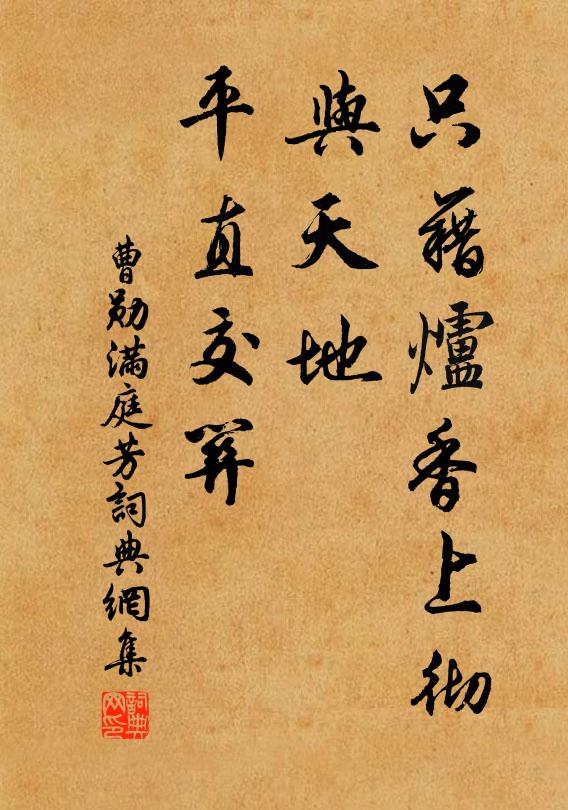 只藉爐香上彻
與天地
平直交
曹勛滿庭芳詞典網集
詞典
网印